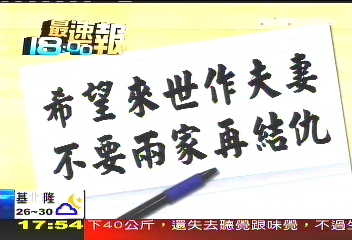 最速報
18:00
希望來世作夫妻
不要兩家再結仇
基 隆
26~30
17:54 下40公斤，還失去聽覺跟味覺，不過